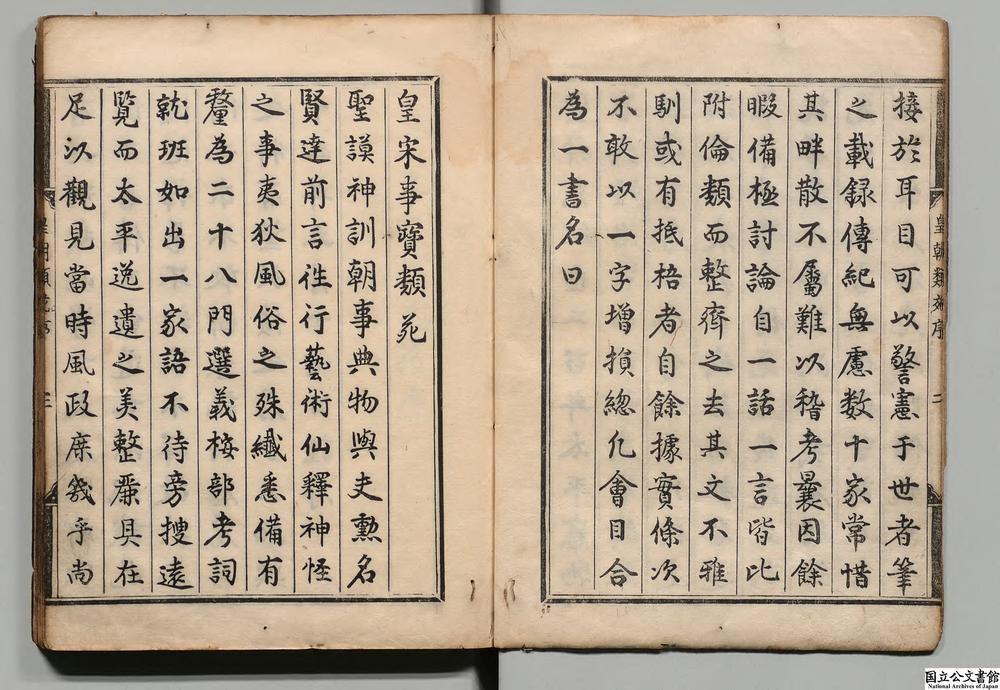 接於耳目可以警憲于世者筆
之載録傳紀無慮数十家常惜
其畔散不屬難以稽考曩因餘
暇備極討論自一話一言皆比
附倫類而整齊之去其文不雅
馴或有抵梧者自餘據實條次
不敢以一字增損總凢會目合
為一書名曰
皇宋事寶類苑
聖謨神訓朝事典物與夫勲名
賢達前言徃行藝術仙釋神怪
之事夷狄風俗之殊纖悉備有
釐為二十八門選義桉部考詞
就班如出一家語不待旁搜遠
覽而太平逸遺之美整齊具在
足以觀見當時風政庶幾乎尚
皇朝類苑序
二
三
国立公文書館
National Archives of Japan